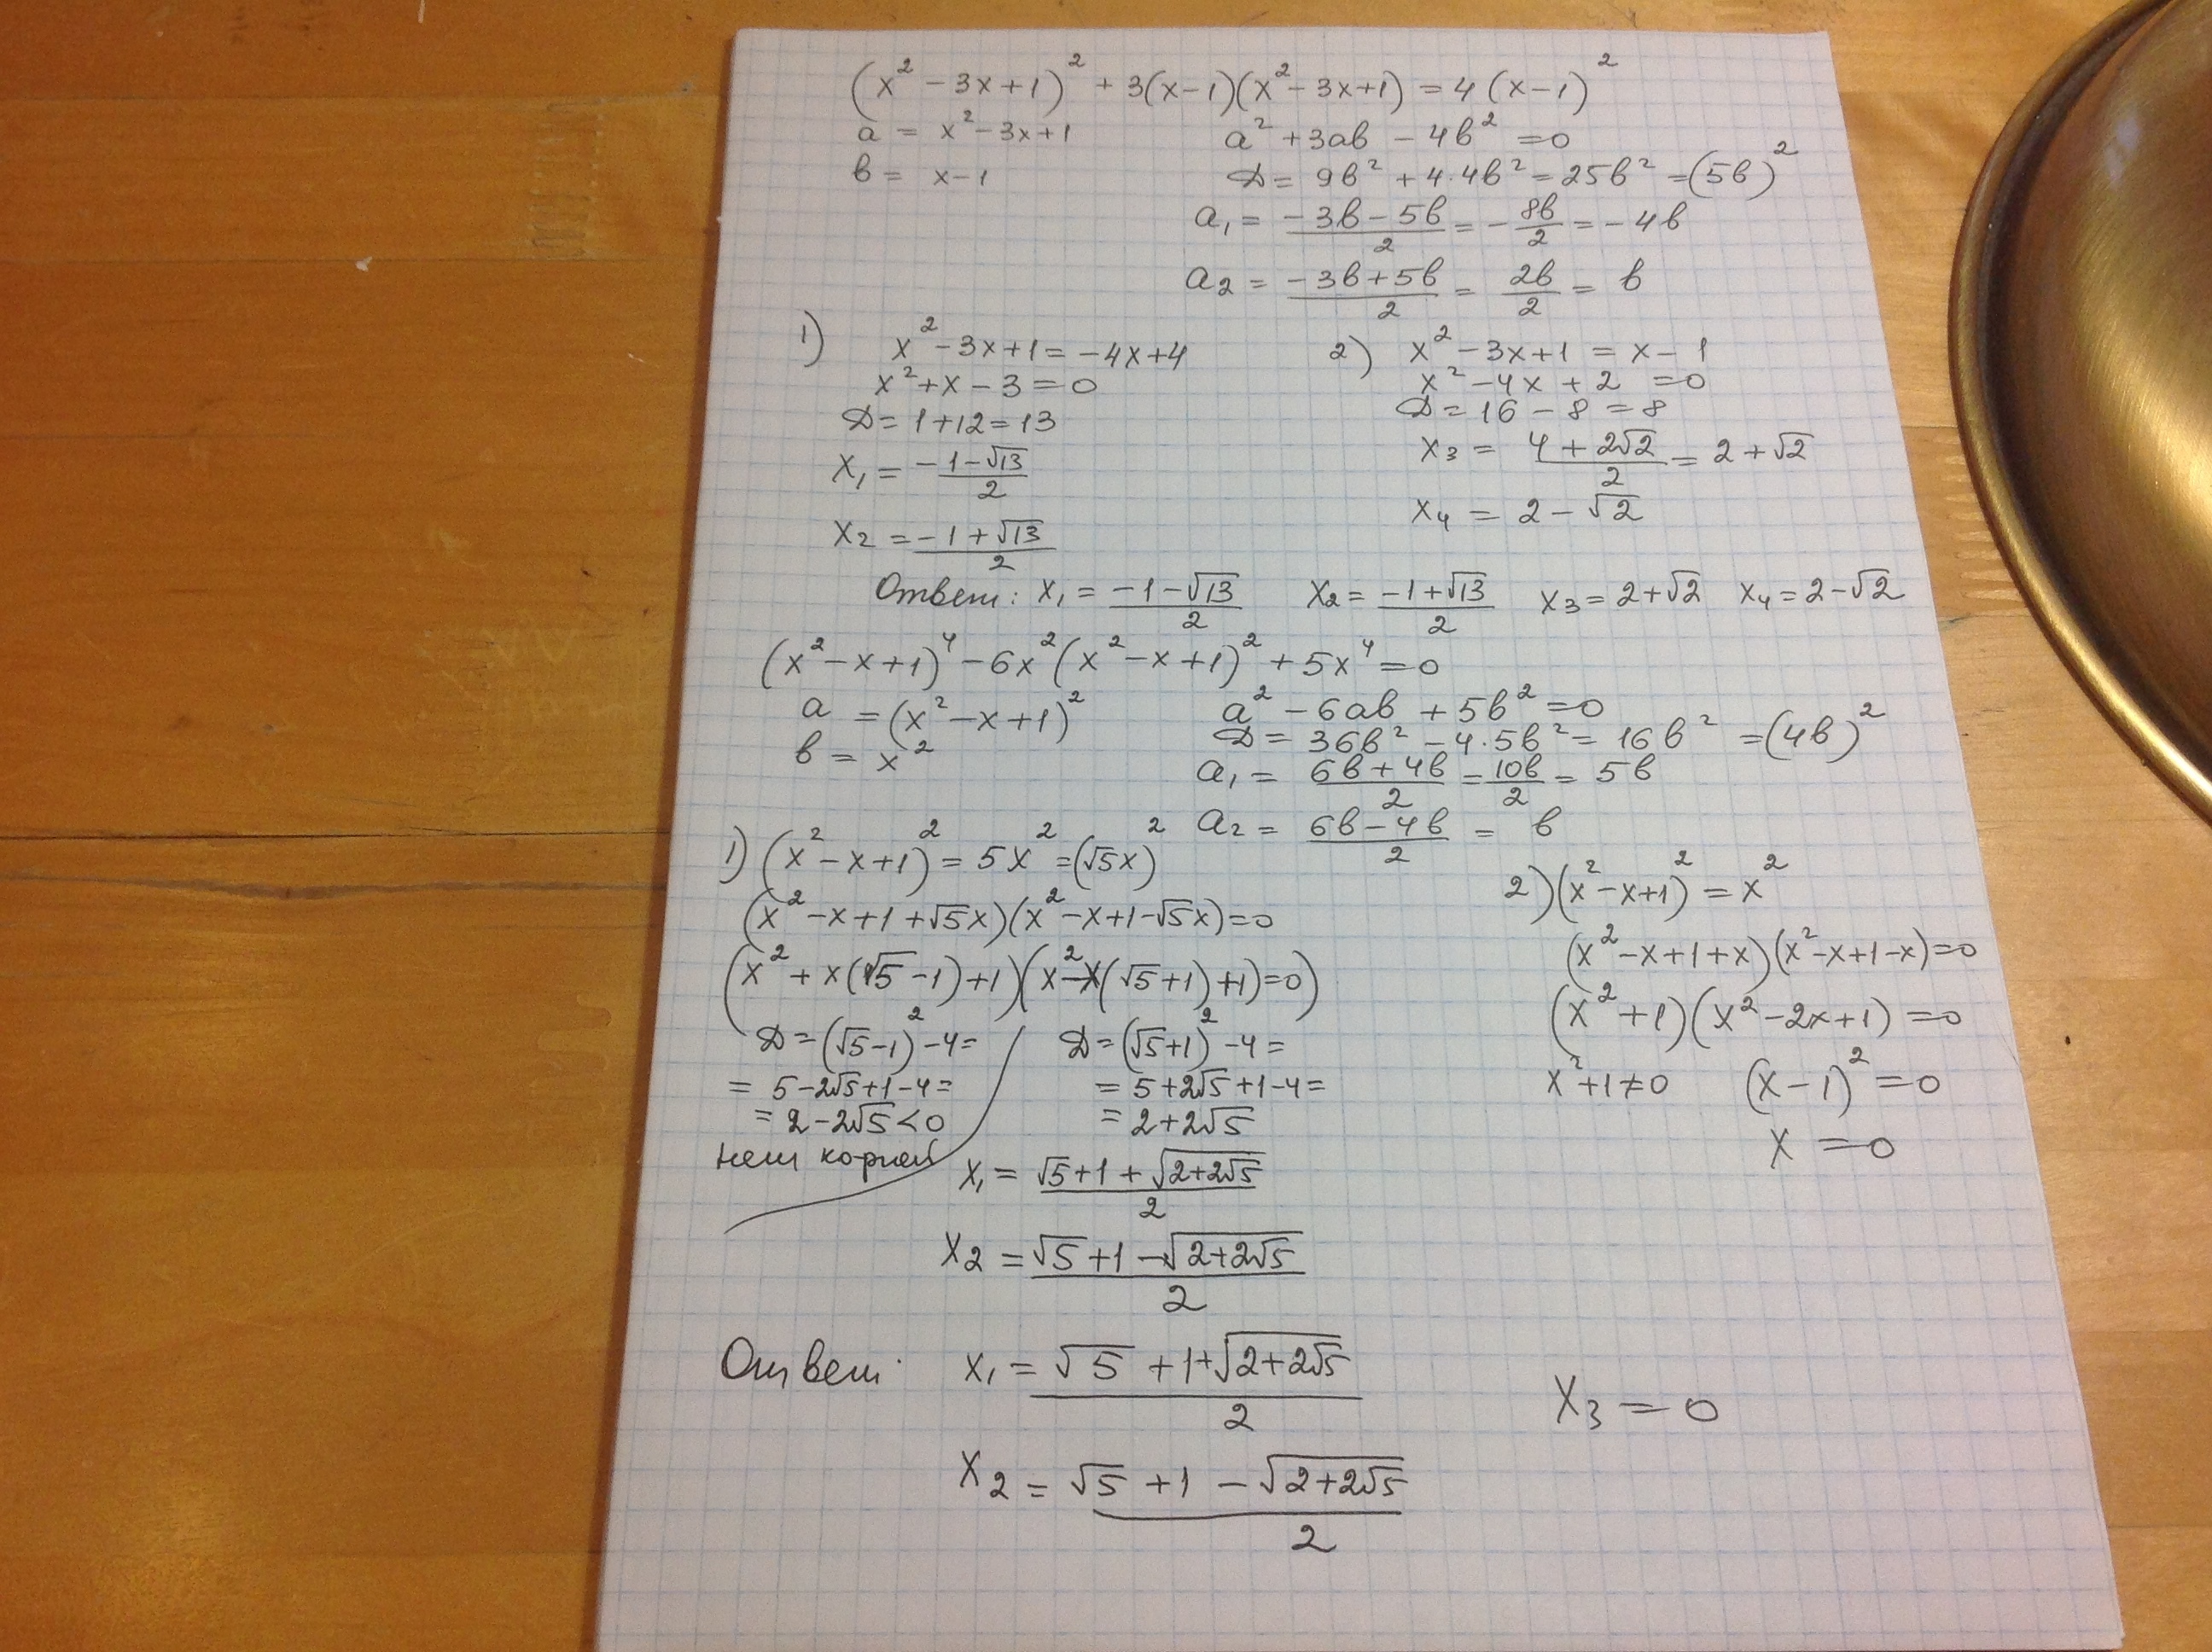 (x² - 3x + 1)² + 3(x-1)(x² - 3x + 1) = 4(x-1)²
a = x² - 3x + 1
a² + 3ab - 4b² = 0
b = x - 1
D = 9b² + 4·4b² = 25b² = (5b)²
a₁ = (-3b - 5b)/2 = -8b/2 = -4b
a₂ = (-3b + 5b)/2 = 2b/2 = b
1) x² - 3x + 1 = -4x + 4
x² + x - 3 = 0
D = 1 + 12 = 13
x₁ = (-1 - √13)/2
x₂ = (-1 + √13)/2
2) x² - 3x + 1 = x - 1
x² - 4x + 2 = 0
D = 16 - 8 = 8
x₃ = (4 + 2√2)/2 = 2 + √2
x₄ = 2 - √2
Ответ: x₁ = (-1 - √13)/2 x₂ = (-1 + √13)/2 x₃ = 2 + √2 x₄ = 2 - √2
(x² - x + 1)⁴ - 6x²(x² - x + 1)² + 5x⁴ = 0
a = (x² - x + 1)²
b = x²
a² - 6ab + 5b² = 0
D = 36b² - 4·5b² = 16b² = (4b)²
a₁ = (6b + 4b)/2 = 10b/2 = 5b
a₂ = (6b - 4b)/2 = b
1) (x² - x + 1)² = 5x² = (√5x)²
(x² - x + 1 + √5x)(x² - x + 1 - √5x) = 0
(x² + x(√5 - 1) + 1)(x² - x(√5 + 1) + 1) = 0)
D = (√5 - 1)² - 4 =
= 5 - 2√5 + 1 - 4 =
= 2 - 2√5 < 0
нет корней
D = (√5 + 1)² - 4 =
= 5 + 2√5 + 1 - 4 =
= 2 + 2√5
x₁ = (√5 + 1 + √(2 + 2√5))/2
x₂ = (√5 + 1 - √(2 + 2√5))/2
2) (x² - x + 1)² = x²
(x² - x + 1 + x)(x² - x + 1 - x) = 0
(x² + 1)(x² - 2x + 1) = 0
x² + 1 ≠ 0 (x - 1)² = 0
x = 0
Ответ: x₁ = (√5 + 1 + √(2 + 2√5))/2
x₃ = 0
x₂ = (√5 + 1 - √(2 + 2√5))/2